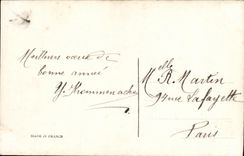 Meilleurs vœux de
bonne année
Melle R. Martin
rue Lafayette
Paris
MADE IN FRANCE